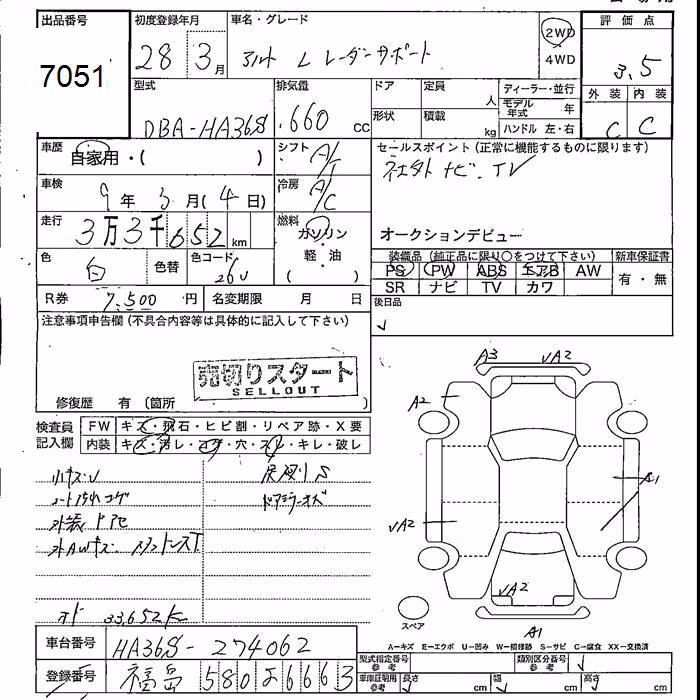 出品番号
7051
初度登録年月
28 3月
車名・グレード
アルト L レーダーサポート
2WD
4WD
評価点
3.5
外装 内装
C C
型式
DBA-HA36S
排気量
660 cc
ドア
定員
人
形状
積載
kg
ディーラー・並行
モデル年式 年
ハンドル 左・右
車歴
自家用・( )
シフト
A/T
セールスポイント(正常に機能するものに限ります)
社外ナビ.TV
車検
9年3月(4日)
冷房
A/C
走行
3万3千652km
燃料
ガソリン
・
軽・油
( )
オークションデビュー
色
白
色替
色コード
26U
装備品(純正品に限り○をつけて下さい)
新車保証書
PS PW ABS エアB AW
有・無
SR ナビ TV カワ
R券 7,500円
名変期限 月 日
後日品
注意事項申告欄(不具合内容等は具体的に記入して下さい)
売切りスタート
SELLOUT
修復歴 有(箇所 )
A3 A2
A2
A1
A2
A2
A1
検査員記入欄
FW キズ・飛石・ヒビ割・リペア跡・X要
内装 キズ・汚レ・コゲ・穴・スレ・キレ・破レ
小キズU
シート汚れコゲ
外装
外AWキズ
戻刻S
ドアミラーキズ
33,652K
スペア
A=キズ E=エクボ U=凹み W=補修跡 S=サビ C=腐食 XX=交換済
車台番号
HA36S-274062
登録番号
福島 580 6663
型式指定番号 参考
類別区分番号 参考
車庫証明用 参考
長さ cm
幅 cm
高さ cm